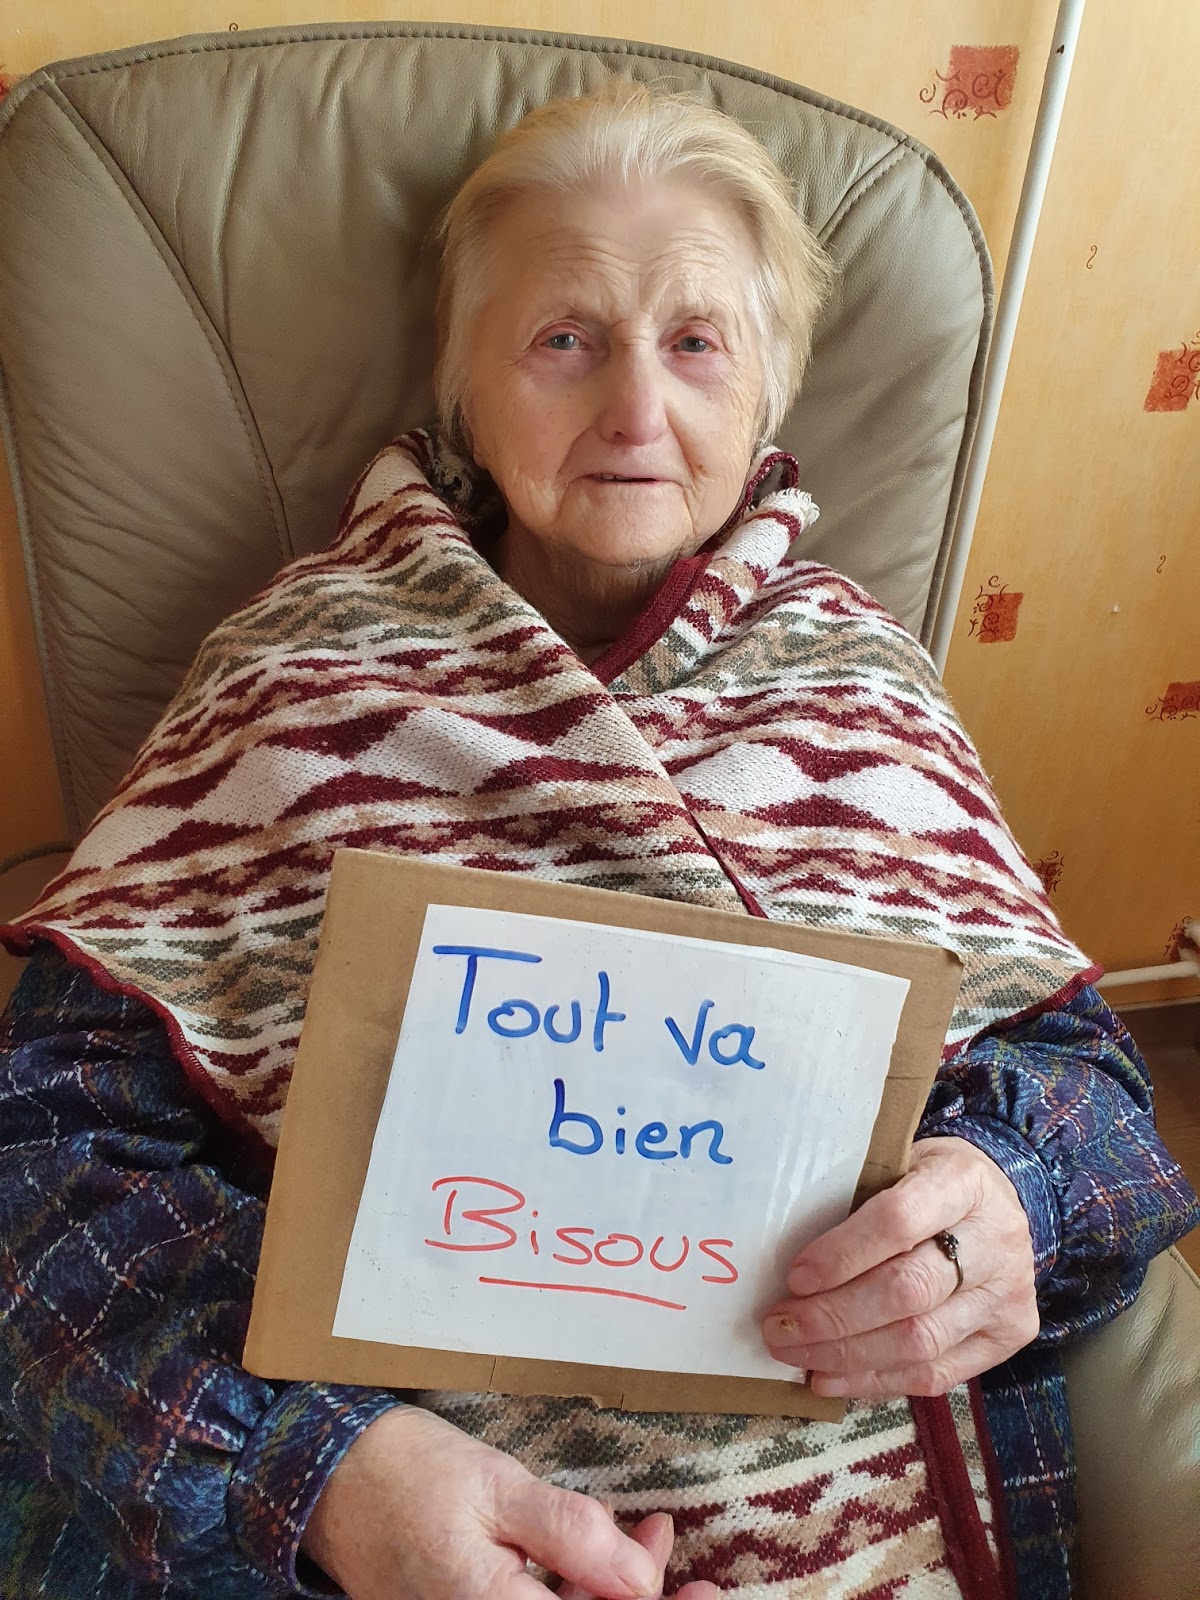 Tout va
bien
Bisous